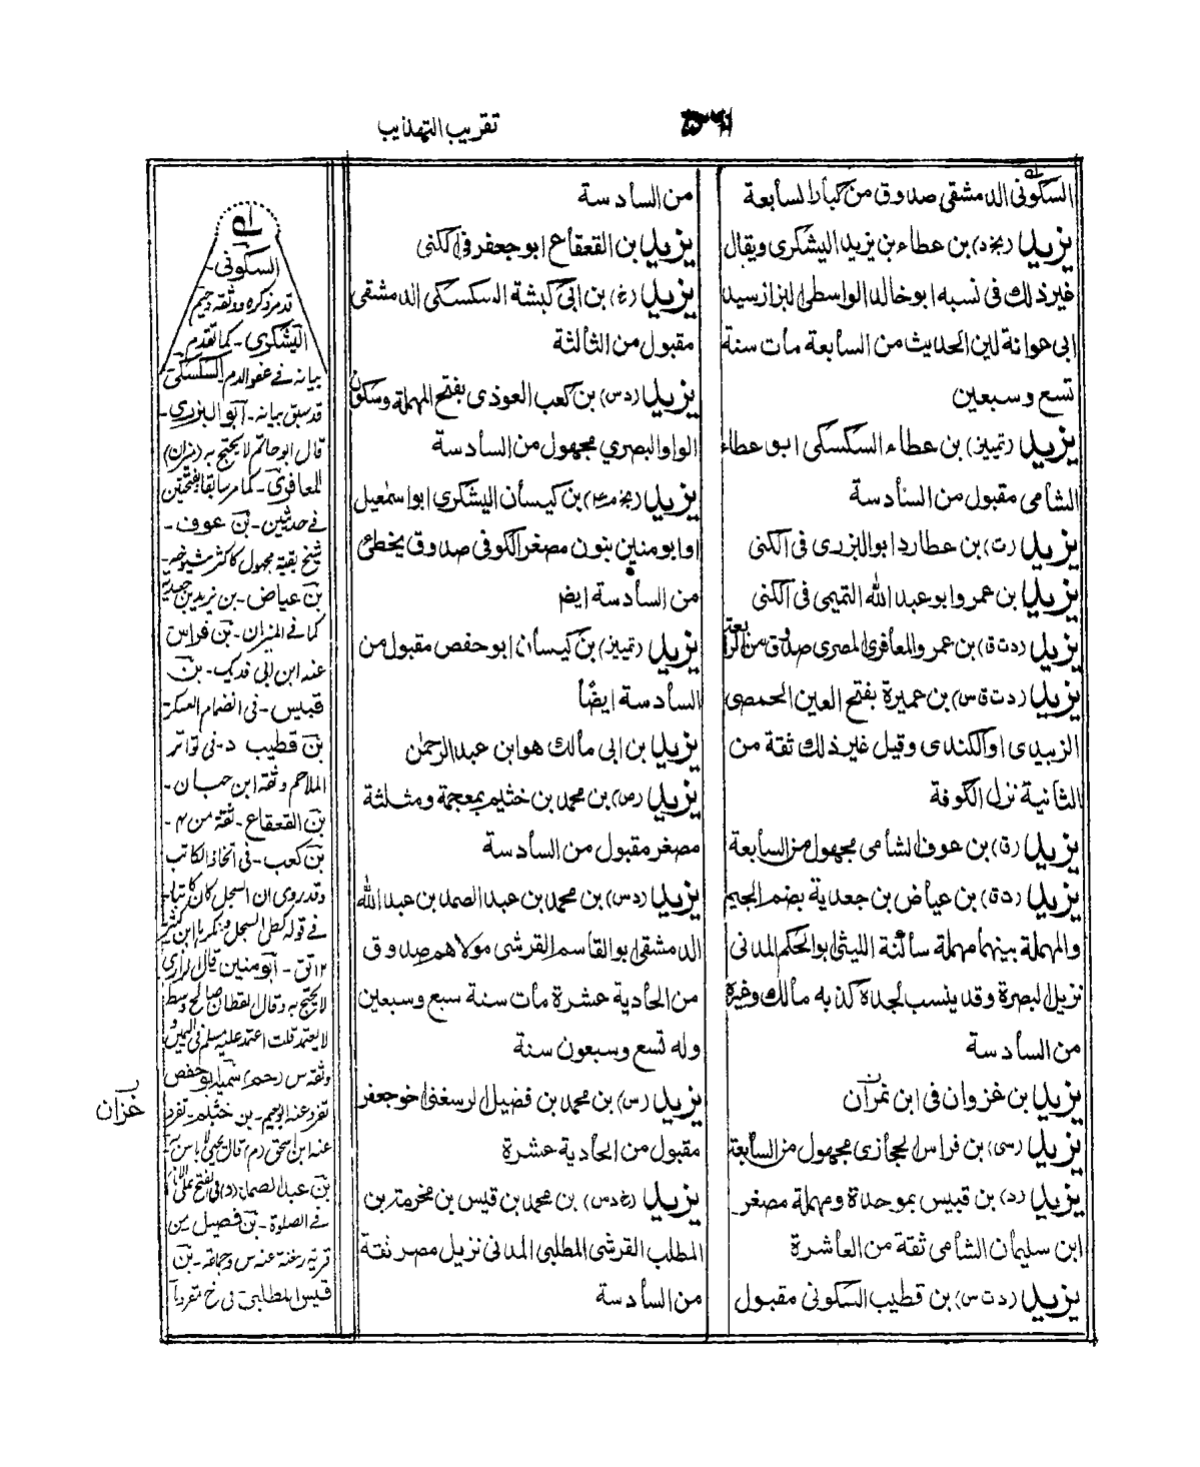 تقريب التهذيب
السكونى الدمشقى صدوق من كبار السابعة
يزيد (بخ د) بن عطاء بن يزيد اليشكرى ويقال
غير ذلك فى نسبه ابو خالد الواسطى البزاز سيد
ابى عوانة لين الحديث من السابعة مات سنة
تسع وسبعين
يزيد (تمييز) بن عطاء السكسكى ابو عطاء
الشامى مقبول من السادسة
يزيد (ت) بن عطارد ابو البزرى فى الكنى
يزيد بن عمرو ابو عبد الله التيمى فى الكنى
يزيد (د ت ق) بن عمرو المعافرى المصرى صدوق من الرابعة
يزيد (د ت ق س) بن عميرة بفتح العين الحمصى
الزبيدى او الكندى وقيل غير ذلك ثقة من
الثانية نزل الكوفة
يزيد (ق) بن عوف الشامى مجهول من السابعة
يزيد (د ق) بن عياض بن جعدبة بضم الجيم
والمهملة بينهما مهملة ساكنة الليثى ابو الحكم المدنى
نزيل البصرة وقد ينسب لجده كذبه مالك وغيره
من السادسة
يزيد بن غزوان فى ابن نمران
يزيد (سى) بن فراس الحجازى مجهول من السابعة
يزيد (د) بن قبيس بموحدة ومهملة مصغر
ابن سليمان الشامى ثقة من العاشرة
يزيد (د ت س) بن قطيب السكونى مقبول
من السادسة
يزيد بن القعقاع ابو جعفر فى الكنى
يزيد (خ) بن ابى كبشة السكسكى الدمشقى
مقبول من الثالثة
يزيد (د س) بن كعب العوذى بفتح المهملة وسكون
الواو البصري مجهول من السادسة
يزيد (بخ م ع) بن كيسان اليشكرى ابو اسمعيل
او ابو منين بنون مصغر الكوفى صدوق يخطئ
من السادسة ايضا
يزيد (تمييز) بن كيسان ابو حفص مقبول من
السادسة ايضًا
يزيد بن ابى مالك هو ابن عبد الرحمن
يزيد (ص) بن محمد بن خثيم بمعجمة ومثلثة
مصغر مقبول من السادسة
يزيد (د س) بن محمد بن عبد الصمد بن عبد الله
الدمشقى ابو القاسم القرشى مولاهم صدوق
من الحادية عشرة مات سنة سبع وسبعين
وله تسع وسبعون سنة
يزيد (س) بن محمد بن فضيل الرسغنى اخو جعفر
مقبول من الحادية عشرة
يزيد (خ د س) بن محمد بن قيس بن مخرمة بن
المطلب القرشى المطلبى المدنى نزيل مصر ثقة
من السادسة
السكونى-
قد مر ذكره ووثقه دحيم
اليشكرى - كما تقدم
بيانه فے عفو الدم السكسكى
قد سبق بيانه - ابو البزرى -
قال ابو حاتم لا يحتج به (ميزان)
المعافرى - كما مر سابقا بفتحتين
فے حديثين - بن عوف -
شيخ بقية مجهول كاكثر شيوخه -
بن عياض - بن يزيد بن جعدبة
كما فے الميزان - بن فراس
عنه ابن ابى فديك - بن
قبيس - فى انضمام العسكر
بن قطيب د - فى تواتر
الملاحم وثقه ابن حبان -
بن القعقاع - ثقة من ٤ -
بن كعب - فى اتخاذ الكاتب
وقد روى ان السجل كان كاتبا -
فے قوله كطى السجل
١٢ تق - ابو منين قال الرازى
لا يحتج به وقال القطان صالح وسط
لا يعتمد قلت اعتمد عليه مسلم
تفرد عنه ابو نعيم - بن خثيم - تفرد
عنه ابن اسحق
بن عبد الصمد
فے الصلوة - بن فضيل من
قرية رسغنة عنه س وجماعة - بن
قيس المطلبى فى خ
غزان